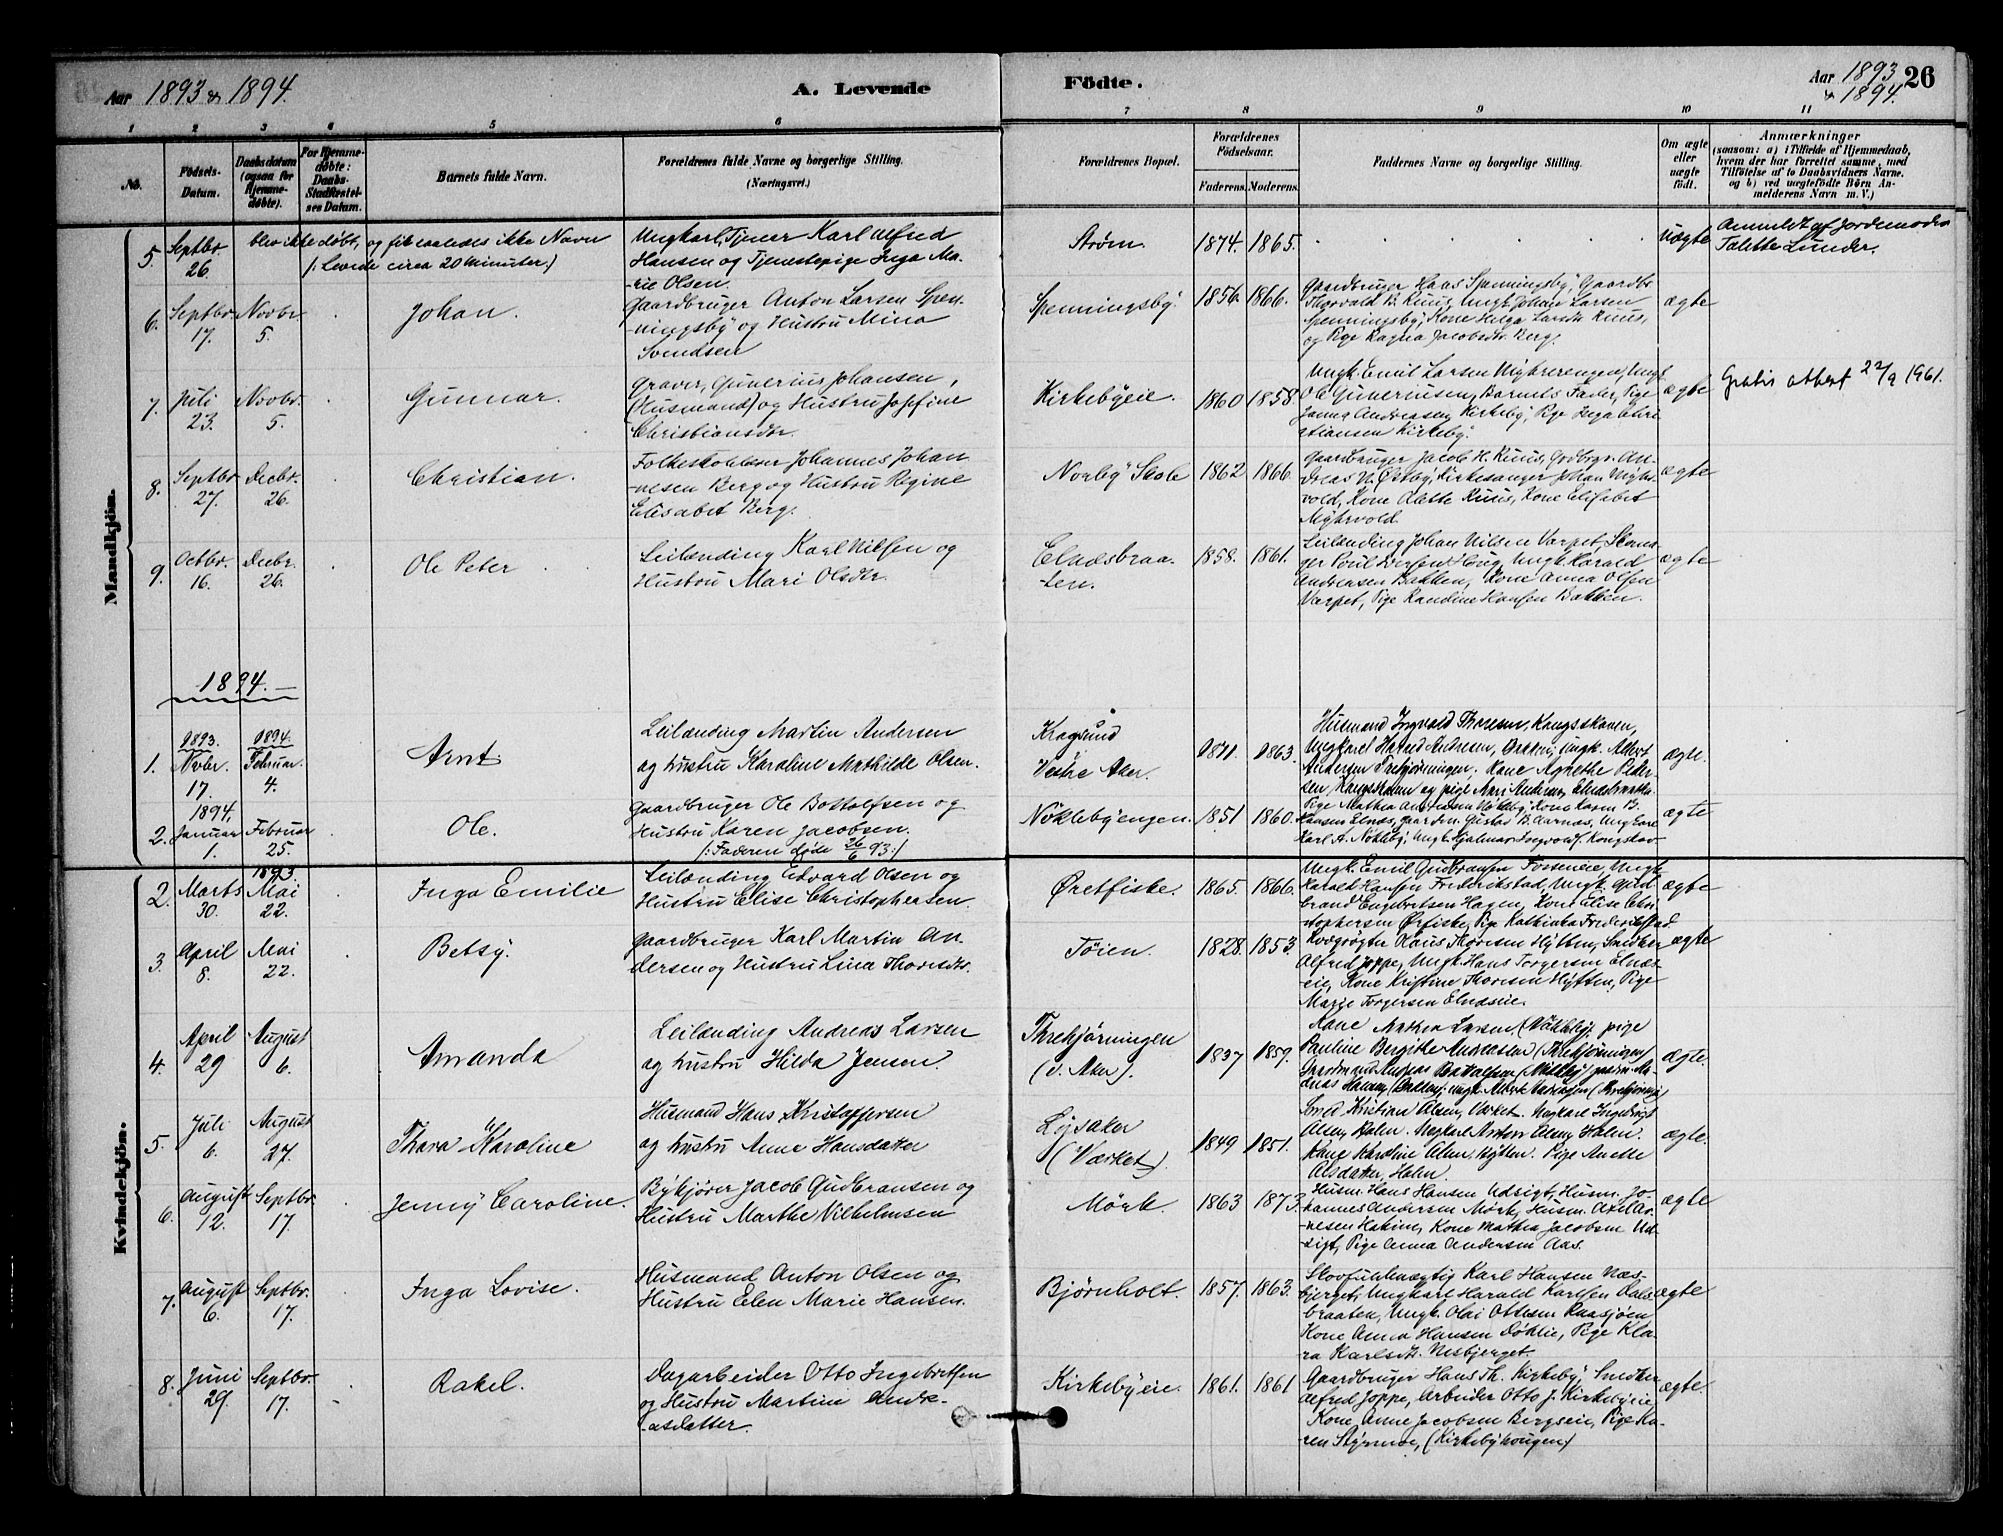 Aar 1893 & 1894.
A. Levende Födte.
Aar 1893 & 1894. 26
1 2 3 4 5 6 7 8 9 10 11
No.
Födsels-Datum.
Daabsdatum (ogsaa for Hjemme-døbte).
For Hjemme-døbte: Daabs-Stadfæstelses Datum.
Barnets fulde Navn.
Forældrenes fulde Navne og borgerlige Stilling. (Næringsvei.)
Forældrenes Bopæl.
Forældrenes Födselsaar.
Faderens. Moderens.
Faddernes Navne og borgerlige Stilling.
Om ægte eller uægte født.
Anmærkninger (saasom: a) i Tilfælde af Hjemmedaab, hvem der har forrettet samme, med Tilföielse af to Daabsvidners Navne. og b) ved uægtefödte Börn Anmelderens Navn m. V.)
Mandkjön.
5. Septbr. 26. blev ikke døbt, og fik saaledes ikke Navn
(: Levede circa 20 Minuter:)
Ungkarl, Tjener Karl Alfred
Hansen og Tjenestepige Inga Ma-
rie Olsen.
Strøm. 1874. 1865. uægte
Anmeldt af Jordemoder
Talette Lunder.
6. Septbr. 17. Novbr. 5. Johan.
Gaardbruger Anton Larsen Spen-
ningsby og Hustru Mina
Svendsen
Spenningsby 1856. 1866.
Gaardbruger Hans Spenningsby, Gaardbr.
Thorvald B. Ruus, Ungk. Johan Larsen
Spenningsby, Kone Helga Larsdtr. Ruus,
og Pige Ragna Jacobsdtr. Berg.
ægte
7. Juli 23. Novbr. 5. Gunnar.
Graver, Gunerius Johansen,
(Husmand) og Hustru Josefine
Christiansdtr.
Kirkebyeie. 1860 1858
Ungk. Emil Larsen Myhrerengen, Ungk.
O. C. Guneriusen, Barnets Fader, Pige
Janna Andreasen, Kirkeby, Pige Inga Chri-
stiansen Kirkeby.
ægte
Gratis attest 22/9 1961.
8. Septbr 27. Decbr. 26. Christian.
Folkeskolelærer Johannes Johan
nesen Berg og Hustru Regine
Elisabet Berg.
Norby Skole 1862 1866.
Gaardbruger Jacob H. Ruus, Grdbrgr. An-
dreas N. Østby, Kirkesanger Johan Myhr-
vold, Kone Olette Ruus, Kone Elisabet
Myhrvold.
ægte
9. Octbr. 16. Decbr. 26. Ole Peter
Leilænding Karl Nilsen og
Hustru Mari Olsdtr.
Elnæsbraa-
ten.
1858. 1861.
Leilænding Johan Nilsen Varpet,
Andersen Bakken, Kone Anna Olsen
Varpet, Pige Randine Hansen Bakken.
ægte
1894.
1. 1893. Novbr. 17. 1894. Februar 4. Arnt
Leilænding Martin Andersen
og hustru Karoline Mathilde Olsen.
Kragsund
Vestre Aker.
1871. 1863.
Husmand Ingvald Thoresen, Kongsskoven,
Ungkarl Andersen, ungk. Albert
Andersen Trehjørningen, Kone Agnethe Peder-
sen, Kongsskoven og pige Mari Andersen,
ægte.
2. 1894. Januar 1. Februar 25. Ole.
Gaardbruger Ole Bottolfsen og
Hustru Karen Jacobsen.
(: Faderen døde 26/6 93:)
Nöklebyengen. 1851 1860.
Pige Mathea Andersen Nökleby, Kone Karen B.
Hansen Elnæs, Gaardm. Gustav B. Aarnæs, Ungkarl
Karl A. Nökleby, Ungk. Hjalmar Ingvolds. Kongskov.
ægte
Kvindekjön.
2. Marts 30. 1893 Mai 22. Inga Emilie
Leilænding Edvard Olsen og
Hustru Elise Christophersen.
Øretfiske. 1865. 1866.
Ungk. Emil Gudbransen Fosseneie, Ungk.
Harald Hansen Fredrikstad, Ungk. Gud-
brand Engebretsen Hagen, Kone Elise Chri-
stophersen Ørfiske, Pige Kathinka Frederikstad.
ægte
3. April 8. Mai 22. Betsy.
Gaardbruger Karl Martin An-
dersen og Hustru Lina Thoresdtr.
Töien. 1828. 1853.
Kvægrøgter Olaus Thoresen Hytten, Snedker
Alfred Joppe, Ungk. Hans Torgersen Elnæs-
eie, Kone Kristine Thoresen Hytten, Pige
Marie Torgersen Elnæseie.
ægte
4. April 29 August 6. Amanda
Leilænding Andreas Larsen
og hustru Hilda Jensen.
Threhjørningen
(v. Aker).
1837 1859.
Kone Mathea Larsen (Nökleby), pige
Pauline Bergitte Andreassen (Threhjørningen)
ægte.
5. Juli 6. August 27. Thora Karoline
Husmand Hans Kristoffersen
og hustru Anne Hansdatter
Løjsaker
(Værket).
1849 1851.
Kristian Olsen, Værket. Ungkarl Ingebrigt
Olsen, Halen. Ungkarl Anton Olsen, Halen.
Kone Karoline Olsen, Hytten. Pige Anette
Olsdatter, Halen.
ægte.
6. August 12. Septbr. 17. Jenny Caroline.
Bykjører Jacob Gudbransen og
Hustru Marthe Vilhelmsen
Mörk. 1863 1873.
Husm. Hans Hansen Udsigt, Husm. Jo-
hannes Andersen Mörk, Husm. Axel Ar-
nesen Hakim, Kone Mathea Jacobsen Ud-
sigt, Pige Anna Andersen Aas.
ægte
7. August 6. Septbr. 17. Inga Lovise.
Husmand Anton Olsen og
Hustru Elen Marie Hansen.
Bjørnholt. 1857. 1863.
Skovfuldmægtig Karl Hansen Næs-
bjerget, Ungkarl Harald Karlsen Dals-
braaten, Ungk. Olai Ottesen Raasjøen
Kone Anna Hansen Døhlie, Pige Kla-
ra Karlsdtr. Nesbjerget.
ægte
8. Juni 29. Septbr. 17. Rakel.
Dagarbeider Otto Ingebretsen
og Hustru Martine Andre-
asdatter.
Kirkebyeie. 1861. 1861
Gaardbruger Hans Th. Kirkeby, Snedker
Alfred Joppe, Arbeider Otto J. Kirkebyeie,
Kone Anne Jacobsen Bergseie, Pige Ka-
ren Styrmoe, (Kirkebyhougen)
ægte